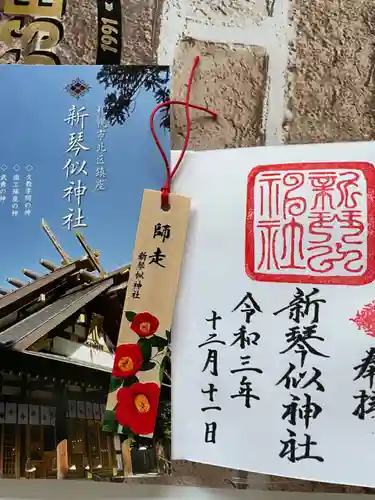 1991
市北区鎮座
新琴似神社
◇文教学問の神
◇武勇の神
師走
新琴似神社
新琴似
神社
奉拝
新琴似神社
令和三年
十二月十一日